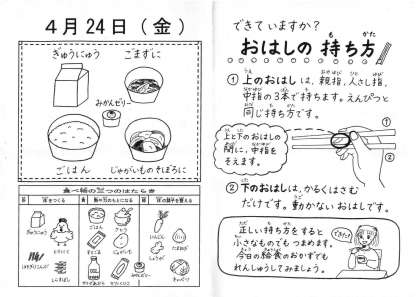 4月24日(金)
ぎゅうにゅう
ごまずに
みかんゼリー
ごはん
じゃがいものそぼろに
食べ物の三つのはたらき
赤
体をつくる
黄
熱や力のもとになる
緑
体の調子を整える
ぎゅうにゅう
とりにく
ごはん
さとう
にんじん
たまねぎ
じゃがいも
できていますか?
おはしの持ち方
① 上のおはしは、親指、人さし指、
中指の3本で持ちます。えんぴつと
同じ持ち方です。
上と下のおはしの
間に、中指を
そえます。
①
②
② 下のおはしは、かるくはさむ
だけです。動かないおはしです。
正しい持ち方をすると
小さなものでもつまめます。
今日の給食のおかずでも
れんしゅうしてみましょう。
できた!